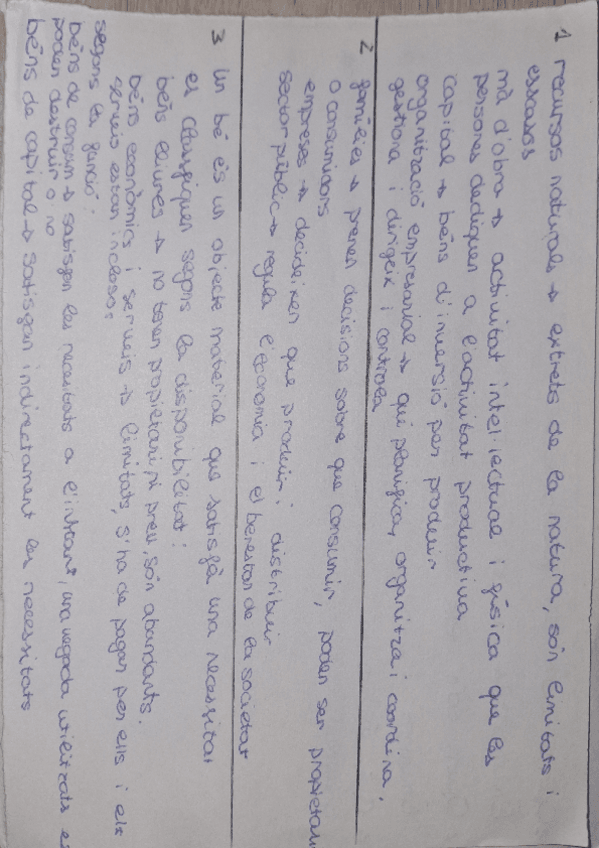 1 recursos naturals → extrets de la natura, són limitats i
escassos
mà d'obra → activitat intel·lectual i física que les
persones dediquen a l'activitat productiva
capital → béns d'inversió per produir
organització empresarial → qui planifica, organitza i coordina,
gestiona i dirigeix i controla
2
famílies → prenen decisions sobre que consumir, poden ser propietaris
o consumidors
empreses → decideixen que produir i distribuir
sector públic → regula l'economia i el benestar de la societat
3 un bé és un objecte material que satisfà una necessitat
es classifiquen segons la disponibilitat:
béns lliures → no tenen propietari ni preu, són abundants.
béns econòmics i serveis → limitats, s'ha de pagar per ells i els
serveis estan inclosos
segons la funció:
béns de consum → satisfan les necessitats a l'instant, una vegada utilitzats es
poden destruir o no
béns de capital → satisfan indirectament les necessitats